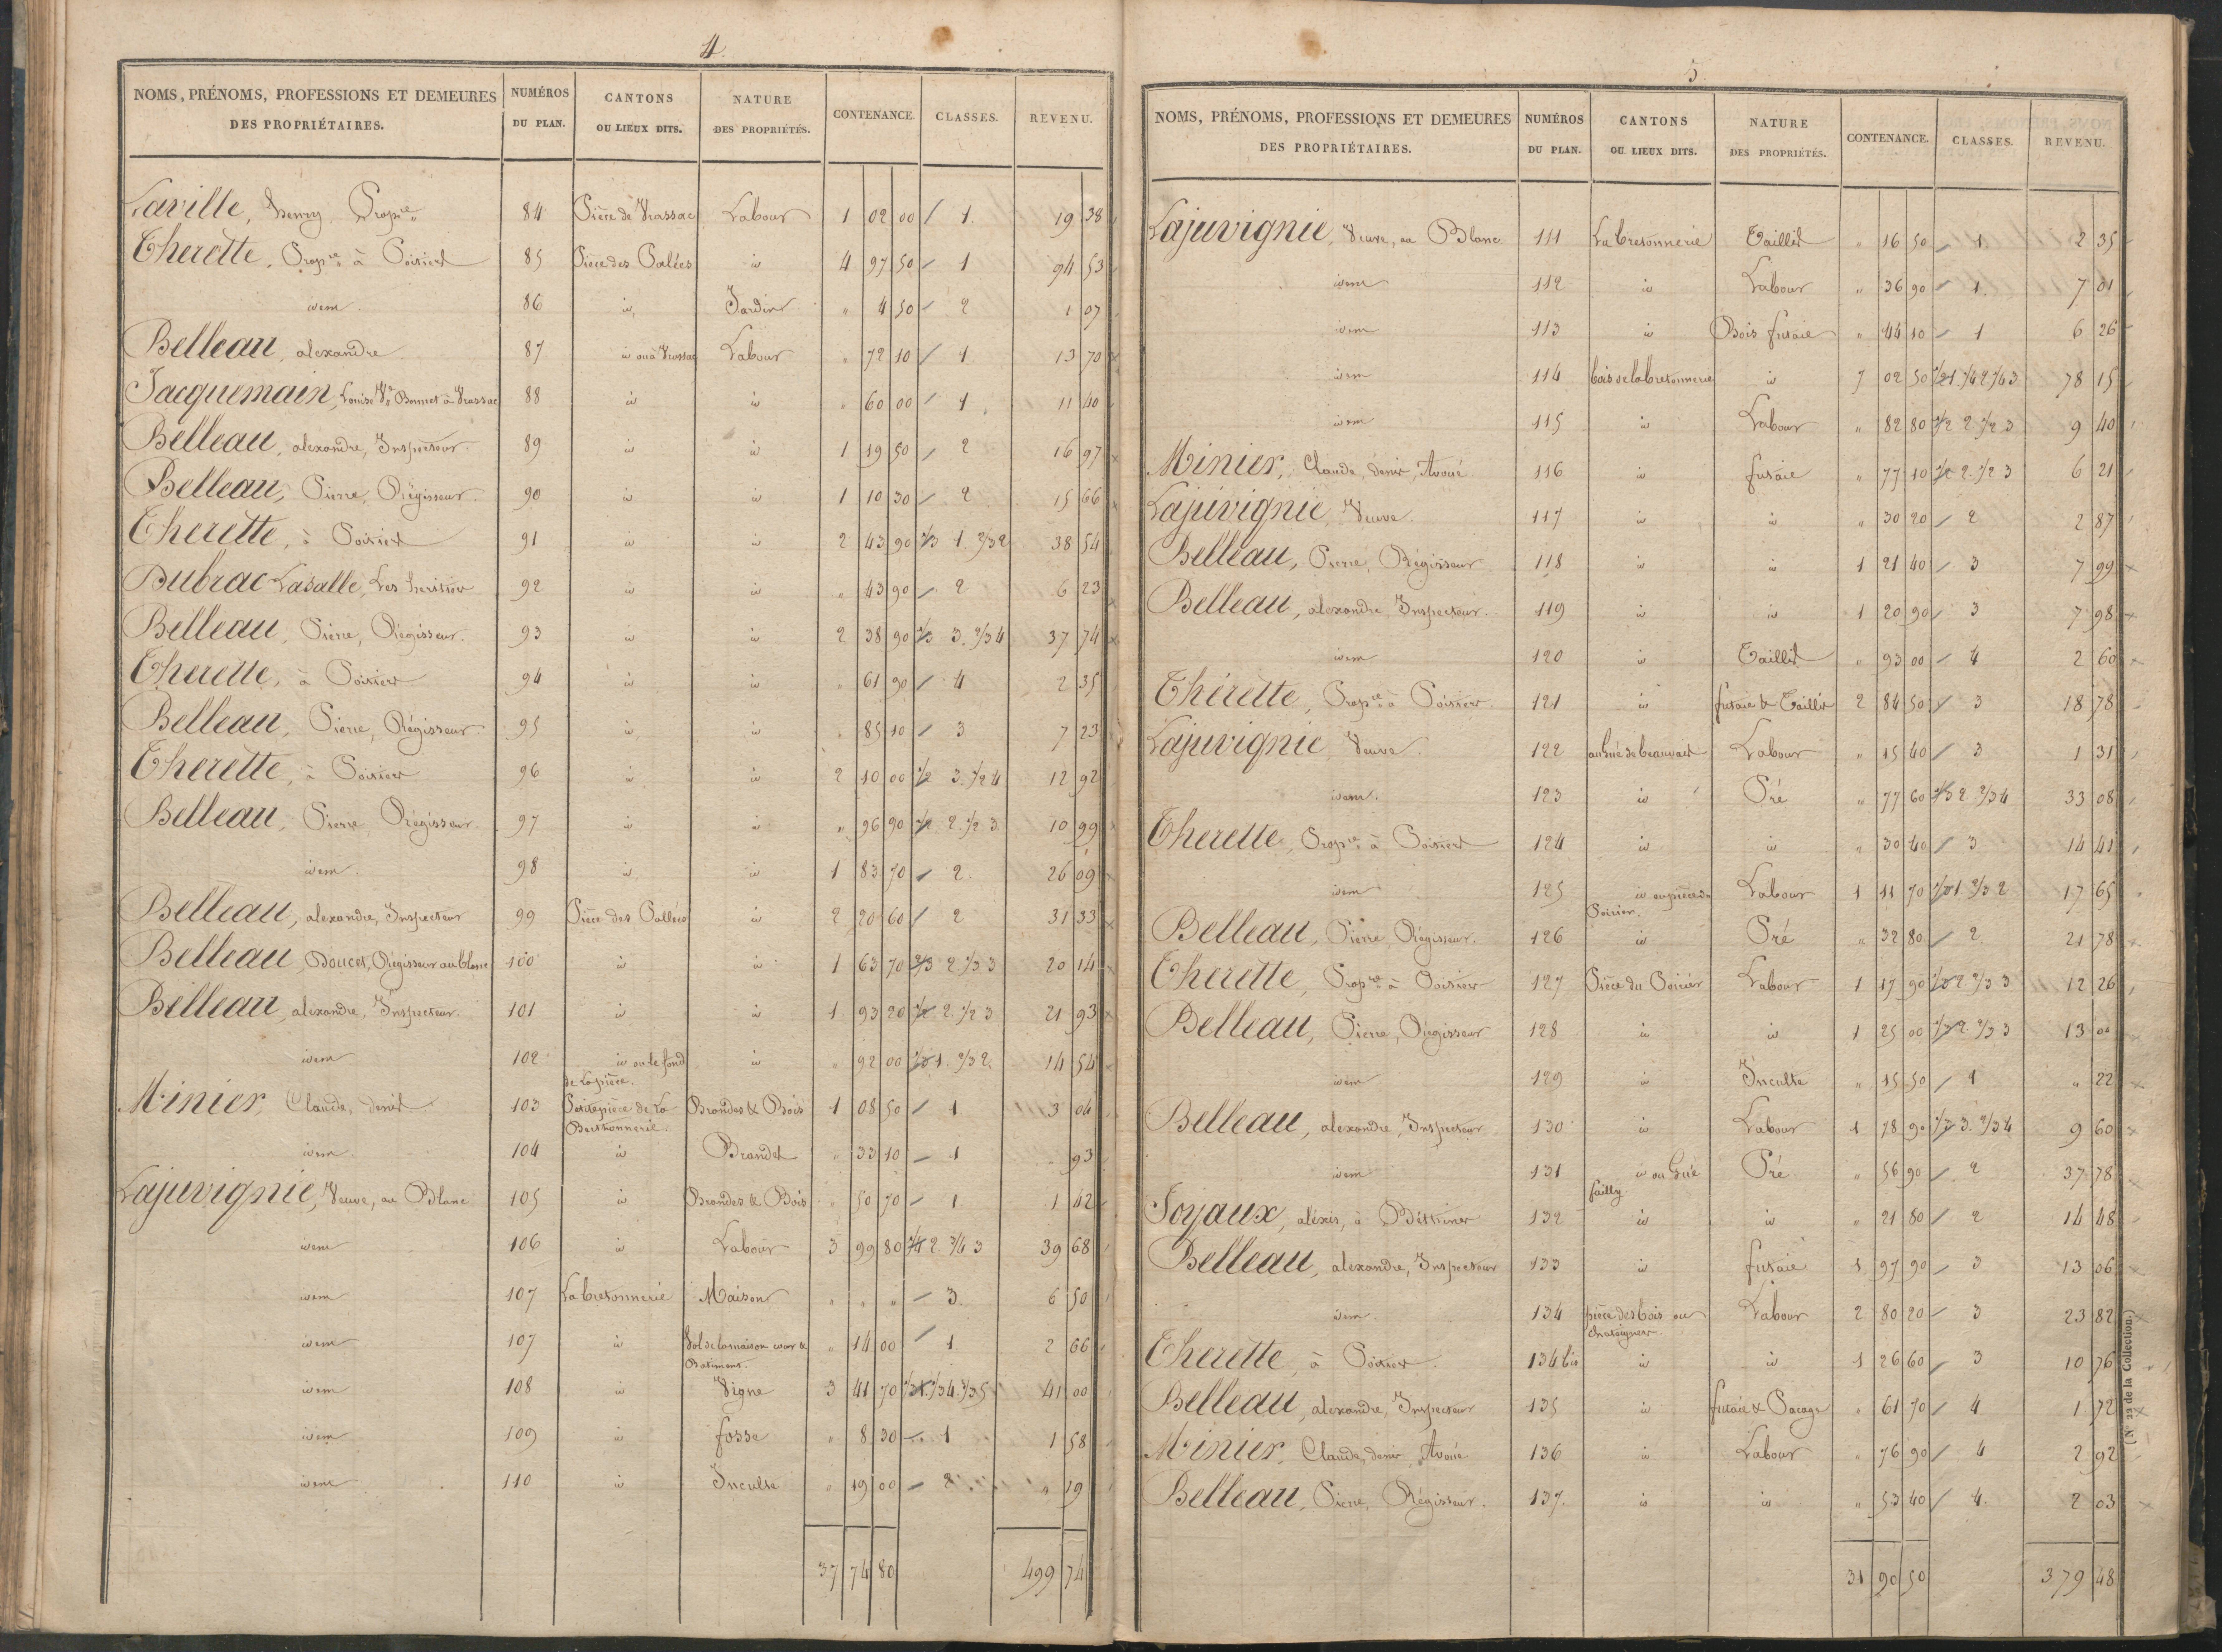 4.
NOMS, PRÉNOMS, PROFESSIONS ET DEMEURES DES PROPRIÉTAIRES. NUMÉROS DU PLAN. CANTONS OU LIEUX DITS. NATURE DES PROPRIÉTÉS. CONTENANCE. CLASSES. REVENU.
Laville, henry, Prop.re 84 Pièce de Vrassac Labour 1 02 00 / 1. 19 38
Therette, Prop.re à Poirier 85 Pièce des Palées id 4 97 50 / 1 94 53
idem 86 id Jardin " 4 50 / 2 1 07
Belleau, alexandre 87 id ou à Vrassac Labour " 72 10 / 1 13 70
Jacquemain, Louise Ve Bonnet à Vrassac 88 id id " 60 00 / 1 11 40
Belleau, alexandre, Inspecteur 89 id id 1 19 50 / 2 16 97
Belleau, Pierre, Régisseur. 90 id id 1 10 30 / 2 15 66
Therette, à Poirier 91 id id 2 43 90 1/3 1. 2/3 2 38 54
Dubrac Lasalle, Les heritiers 92 id id " 43 90 / 2 6 23
Belleau, Pierre, Régisseur. 93 id id 2 38 90 1/3 3. 2/3 4 37 74
Therette, à Poirier 94 id id " 61 90 / 4 2 35
Belleau, Pierre, Régisseur 95 id id " 85 10 / 3 7 23
Therette, à Poirier 96 id id 2 10 00 1/2 3. 1/2 4 12 92
Belleau, Pierre, Régisseur. 97 id id " 96 90 1/2 2. 1/2 3 10 99
idem 98 id id 1 83 70 / 2 26 09
Belleau, alexandre, Inspecteur 99 Pièce des Pallées id 2 20 60 / 2 31 33
Belleau, Doucet, Régisseur au blanc 100 id id 1 63 70 2/3 2 1/3 3 20 14
Belleau, alexandre, Inspecteur. 101 id id 1 93 20 1/2 2. 1/2 3 21 93
idem 102 id ou le fond de la pièce. id " 92 00 1/3 1. 2/3 2. 14 54
Minier, Claude, denis 103 Petite pièce de la Bertonnerie. Brandes & Bois 1 08 50 / 1 3 04
idem 104 id Brandes " 33 10 / 1 " 93
Lajuvignie, Veuve, au Blanc 105 id Brandes & Bois " 50 70 / 1 1 42
idem 106 id Labour 3 99 80 1/4 2 3/4 3 39 68
idem 107 La bretonnerie Maison " " " / 3. 6 50
idem 107 id Sol de la maison cour & Batiment. " 14 00 / 1 2 66
idem 108 id Vigne 3 41 70 41 00
idem 109 id fosse " 8 30 / 1 1 58
idem 110 id Inculte " 19 00 / " 19
37 74 80 499 74
5.
NOMS, PRÉNOMS, PROFESSIONS ET DEMEURES DES PROPRIÉTAIRES. NUMÉROS DU PLAN. CANTONS OU LIEUX DITS. NATURE DES PROPRIÉTÉS. CONTENANCE. CLASSES. REVENU.
Lajuvignie, Veuve, au Blanc 111 La bretonnerie Taillis " 16 50 / 1 2 35
idem 112 id Labour " 36 90 / 1. 7 01
idem 113 id Bois futaie " 44 10 / 1 6 26
idem 114 bois de la bretonnerie id 7 02 50 78 15
idem 115 id Labour " 82 80 1/2 2 1/2 3 9 40
Minier, Claude, denis, Avoué 116 id futaie " 77 10 1/2 2. 1/2 3 6 21
Lajuvignie Veuve. 117 id id " 30 20 / 2 2 87
Belleau, Pierre, Régisseur 118 id id 1 21 40 / 3 7 99
Belleau, alexandre, Inspecteur. 119 id id 1 20 90 / 3 7 98
idem 120 id Taillis " 93 00 / 4 2 60
Thérette, Prop.re à Poirier. 121 id futaie & Taillis 2 84 50 / 3 18 78
Lajuvignie Veuve. 122 au Gué de beauvais Labour " 15 40 / 3 1 31
idem. 123 id Pré " 77 60 1/3 2. 2/3 4 33 08
Therette, Prop.re à Poirier 124 id id " 30 40 / 3 14 41
idem 125 id ou pièce du Poirier. Labour 1 11 70 1/3 1 2/3 2 17 65
Belleau, Pierre, Régisseur. 126 id Pré " 32 80 / 2 21 78
Therette, Prop.re à Poirier 127 Pièce du Poirier Labour 1 17 90 1/3 2 2/3 3 12 26
Belleau, Pierre, Régisseur 128 id id 1 25 00 1/3 2. 2/3 3 13 00
idem 129 id Inculte " 15 50 / 1 " 22
Belleau, alexandre, Inspecteur 130 id Labour 1 78 90 1/3 3. 2/3 4 9 60
idem 131 id ou Gué failly Pré " 56 90 / 2 37 78
Joyaux, aléxis, à 132 id id " 21 80 / 2 14 48
Belleau, alexandre, Inspecteur 133 id futaie 1 97 90 / 3 13 06
idem. 134 pièce des bois ou chataignier. Labour 2 80 20 / 3 23 82
Therette, à Poirier. 134 bis id id 1 26 60 / 3 10 76
Belleau, alexandre, Inspecteur 135 id futaie & Pacage " 61 70 / 4 1 72
Minier, Claude, denis, Avoué 136 id Labour " 76 90 / 4 2 92
Belleau, Pierre, Régisseur. 137. id id " 53 40 / 4. 2 03
31 90 50 379 48
(N° 23 de la Collection.)